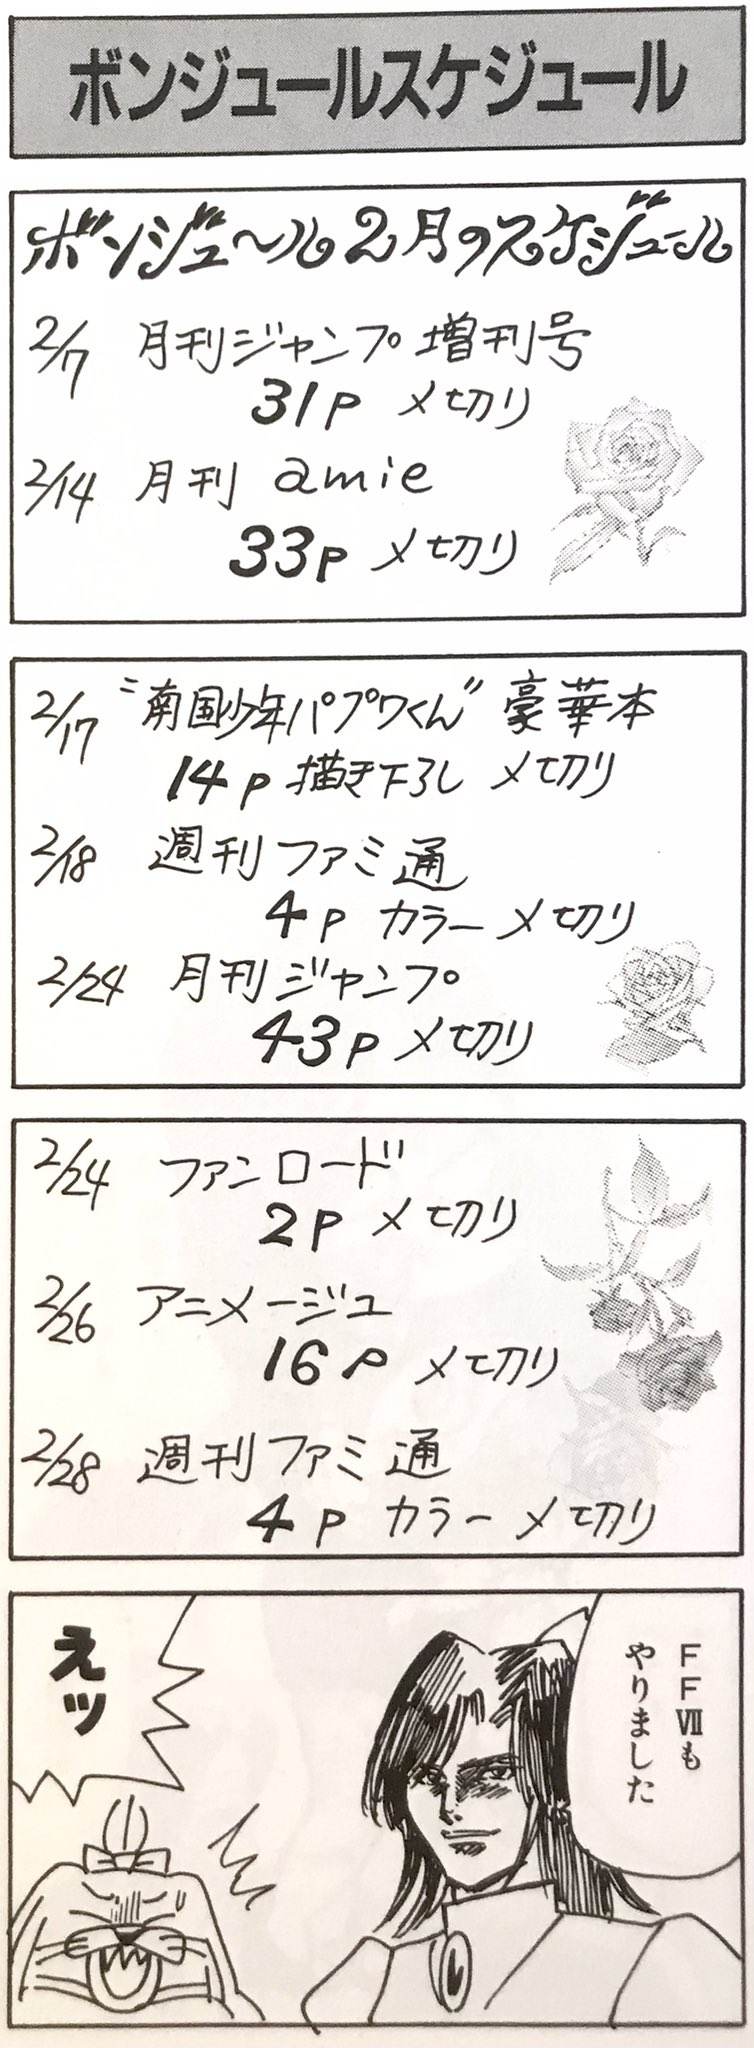 ボンジュールスケジュール
ボンジュ〜ル2月のスケジュール
2/7 月刊ジャンプ 増刊号
31P 〆切り
2/14 月刊 amie
33P 〆切り
2/17 〝南国少年パプワくん〞豪華本
14P 描き下ろし 〆切り
2/18 週刊ファミ通
4P カラー 〆切り
2/24 月刊ジャンプ
43P 〆切り
2/24 ファンロード
2P 〆切り
2/26 アニメージュ
16P 〆切り
2/28 週刊ファミ通
4P カラー 〆切り
FFⅦも
やりました
えッ